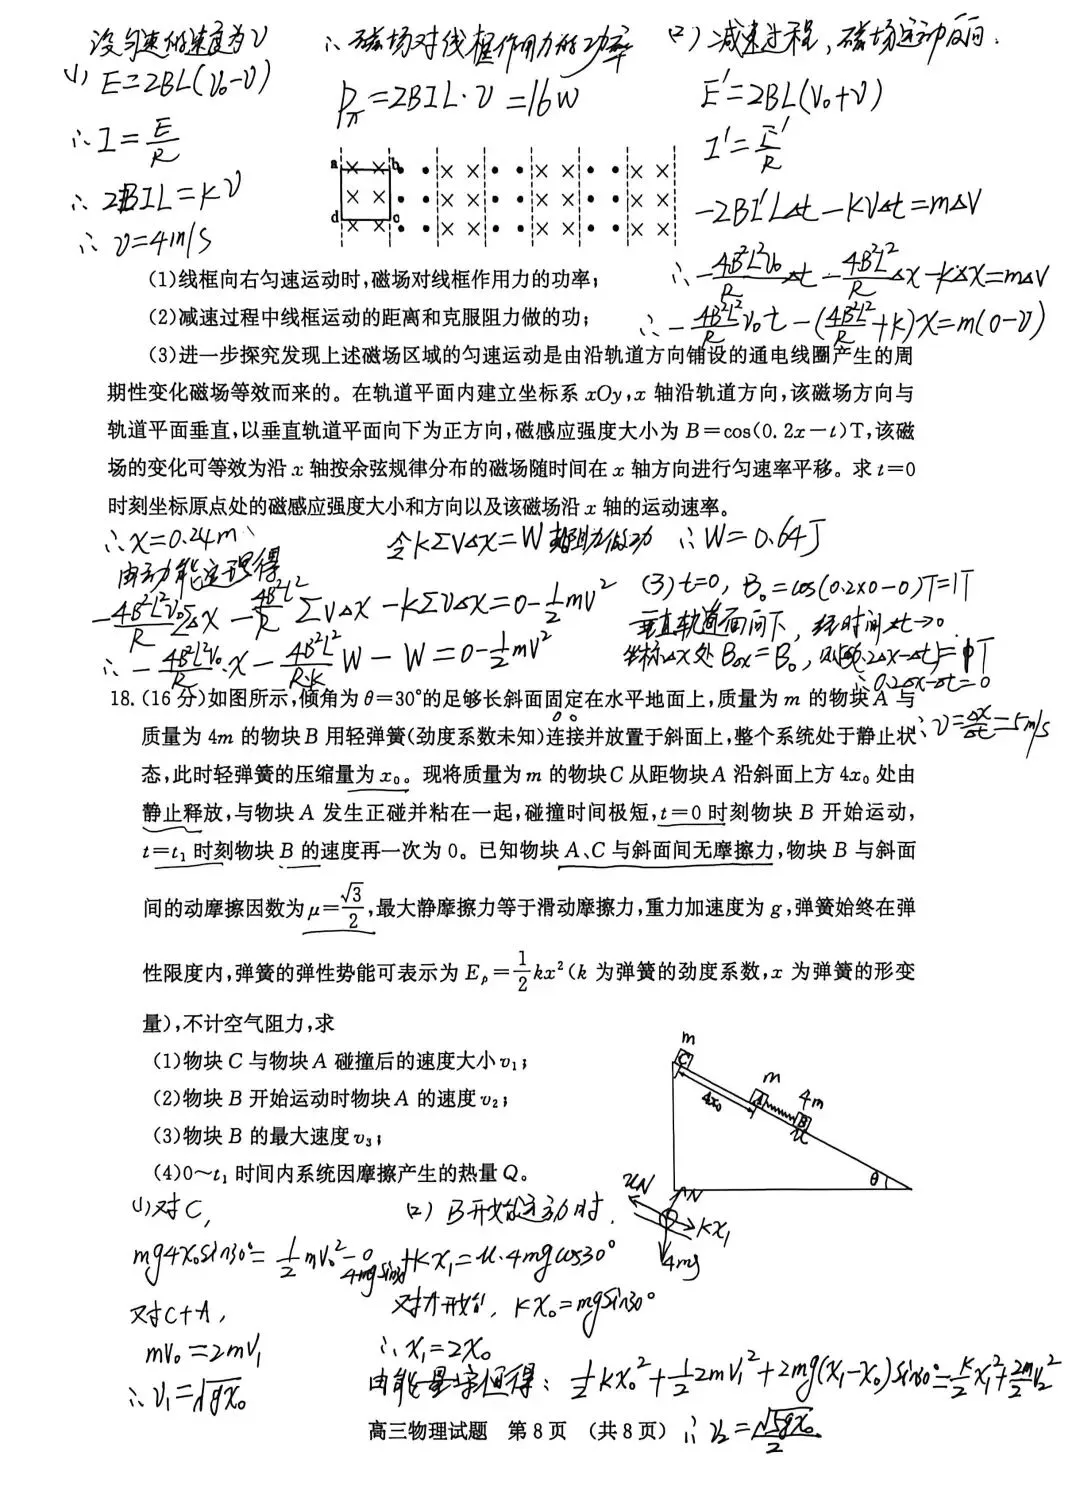 设匀速的速度为v
(1) E=2BL(v₀-v)
∴I=E/R
∴2BIL=kv
∴v=4m/s
∴磁场对线框作用力的功率
P=2BIL·v=16W
(2) 减速过程,磁场运动反向.
E'=2BL(v₀+v)
I'=E'/R
-2BI'LΔt-kvΔt=mΔv
∴-4B²L²v₀/R Δt-4B²L²/R Δx-kΔx=mΔv
∴-4B²L²/R v₀t-(4B²L²/R+k)x=m(0-v)
a b
d c
(1)线框向右匀速运动时,磁场对线框作用力的功率;
(2)减速过程中线框运动的距离和克服阻力做的功;
(3)进一步探究发现上述磁场区域的匀速运动是由沿轨道方向铺设的通电线圈产生的周
期性变化磁场等效而来的。在轨道平面内建立坐标系xOy,x轴沿轨道方向,该磁场方向与
轨道平面垂直,以垂直轨道平面向下为正方向,磁感应强度大小为B=cos(0.2x-t)T,该磁
场的变化可等效为沿x轴按余弦规律分布的磁场随时间在x轴方向进行匀速率平移。求t=0
时刻坐标原点处的磁感应强度大小和方向以及该磁场沿x轴的运动速率。
∴x=0.24m
由动能定理得
-4B²L²v₀/R ΣΔx-4B²L²/R ΣvΔx-kΣvΔx=0-½mv²
∴-4B²L²v₀/R·x-4B²L²/R·k W-W=0-½mv²
令kΣvΔx=W 阻力做功 ∴W=0.64J
(3) t=0, B₀=cos(0.2x0-0)T=1T
垂直轨道面向下, 经时间Δt→0.
坐标Δx处BΔx=B₀, 则cos(0.2Δx-Δt)=1T
∴0.2Δx-Δt=0
∴v=Δx/Δt=5m/s
18.(16分)如图所示,倾角为θ=30°的足够长斜面固定在水平地面上,质量为m的物块A与
质量为4m的物块B用轻弹簧(劲度系数未知)连接并放置于斜面上,整个系统处于静止状
态,此时轻弹簧的压缩量为x₀。现将质量为m的物块C从距物块A沿斜面上方4x₀处由
静止释放,与物块A发生正碰并粘在一起,碰撞时间极短,t=0时刻物块B开始运动,
t=t₁时刻物块B的速度再一次为0。已知物块A、C与斜面间无摩擦力,物块B与斜面
间的动摩擦因数为μ=√3/2,最大静摩擦力等于滑动摩擦力,重力加速度为g,弹簧始终在弹
性限度内,弹簧的弹性势能可表示为Eₚ=½kx²(k为弹簧的劲度系数,x为弹簧的形变
量),不计空气阻力,求
(1)物块C与物块A碰撞后的速度大小v₁;
(2)物块B开始运动时物块A的速度v₂;
(3)物块B的最大速度v₃;
(4)0~t₁时间内系统因摩擦产生的热量Q。
m
C
4x₀
m
A
4m
B
μ
θ
μN
N
kx₁
4mg
(1)对C,
mg4x₀sin30°=½mv₀²-0
对C+A,
mv₀=2mv₁
∴v₁=√gx₀
(2) B开始运动时,
4mgsin30°+kx₁=μ·4mgcos30°
对A开始, kx₀=mgsin30°
∴x₁=2x₀
由能量守恒得: ½kx₀²+½2mv₁²+2mg(x₁-x₀)sin30°=k/2 x₁²+2m/2 v₂²
∴v₂=√5gx₀/2
高三物理试题 第8页 (共8页)